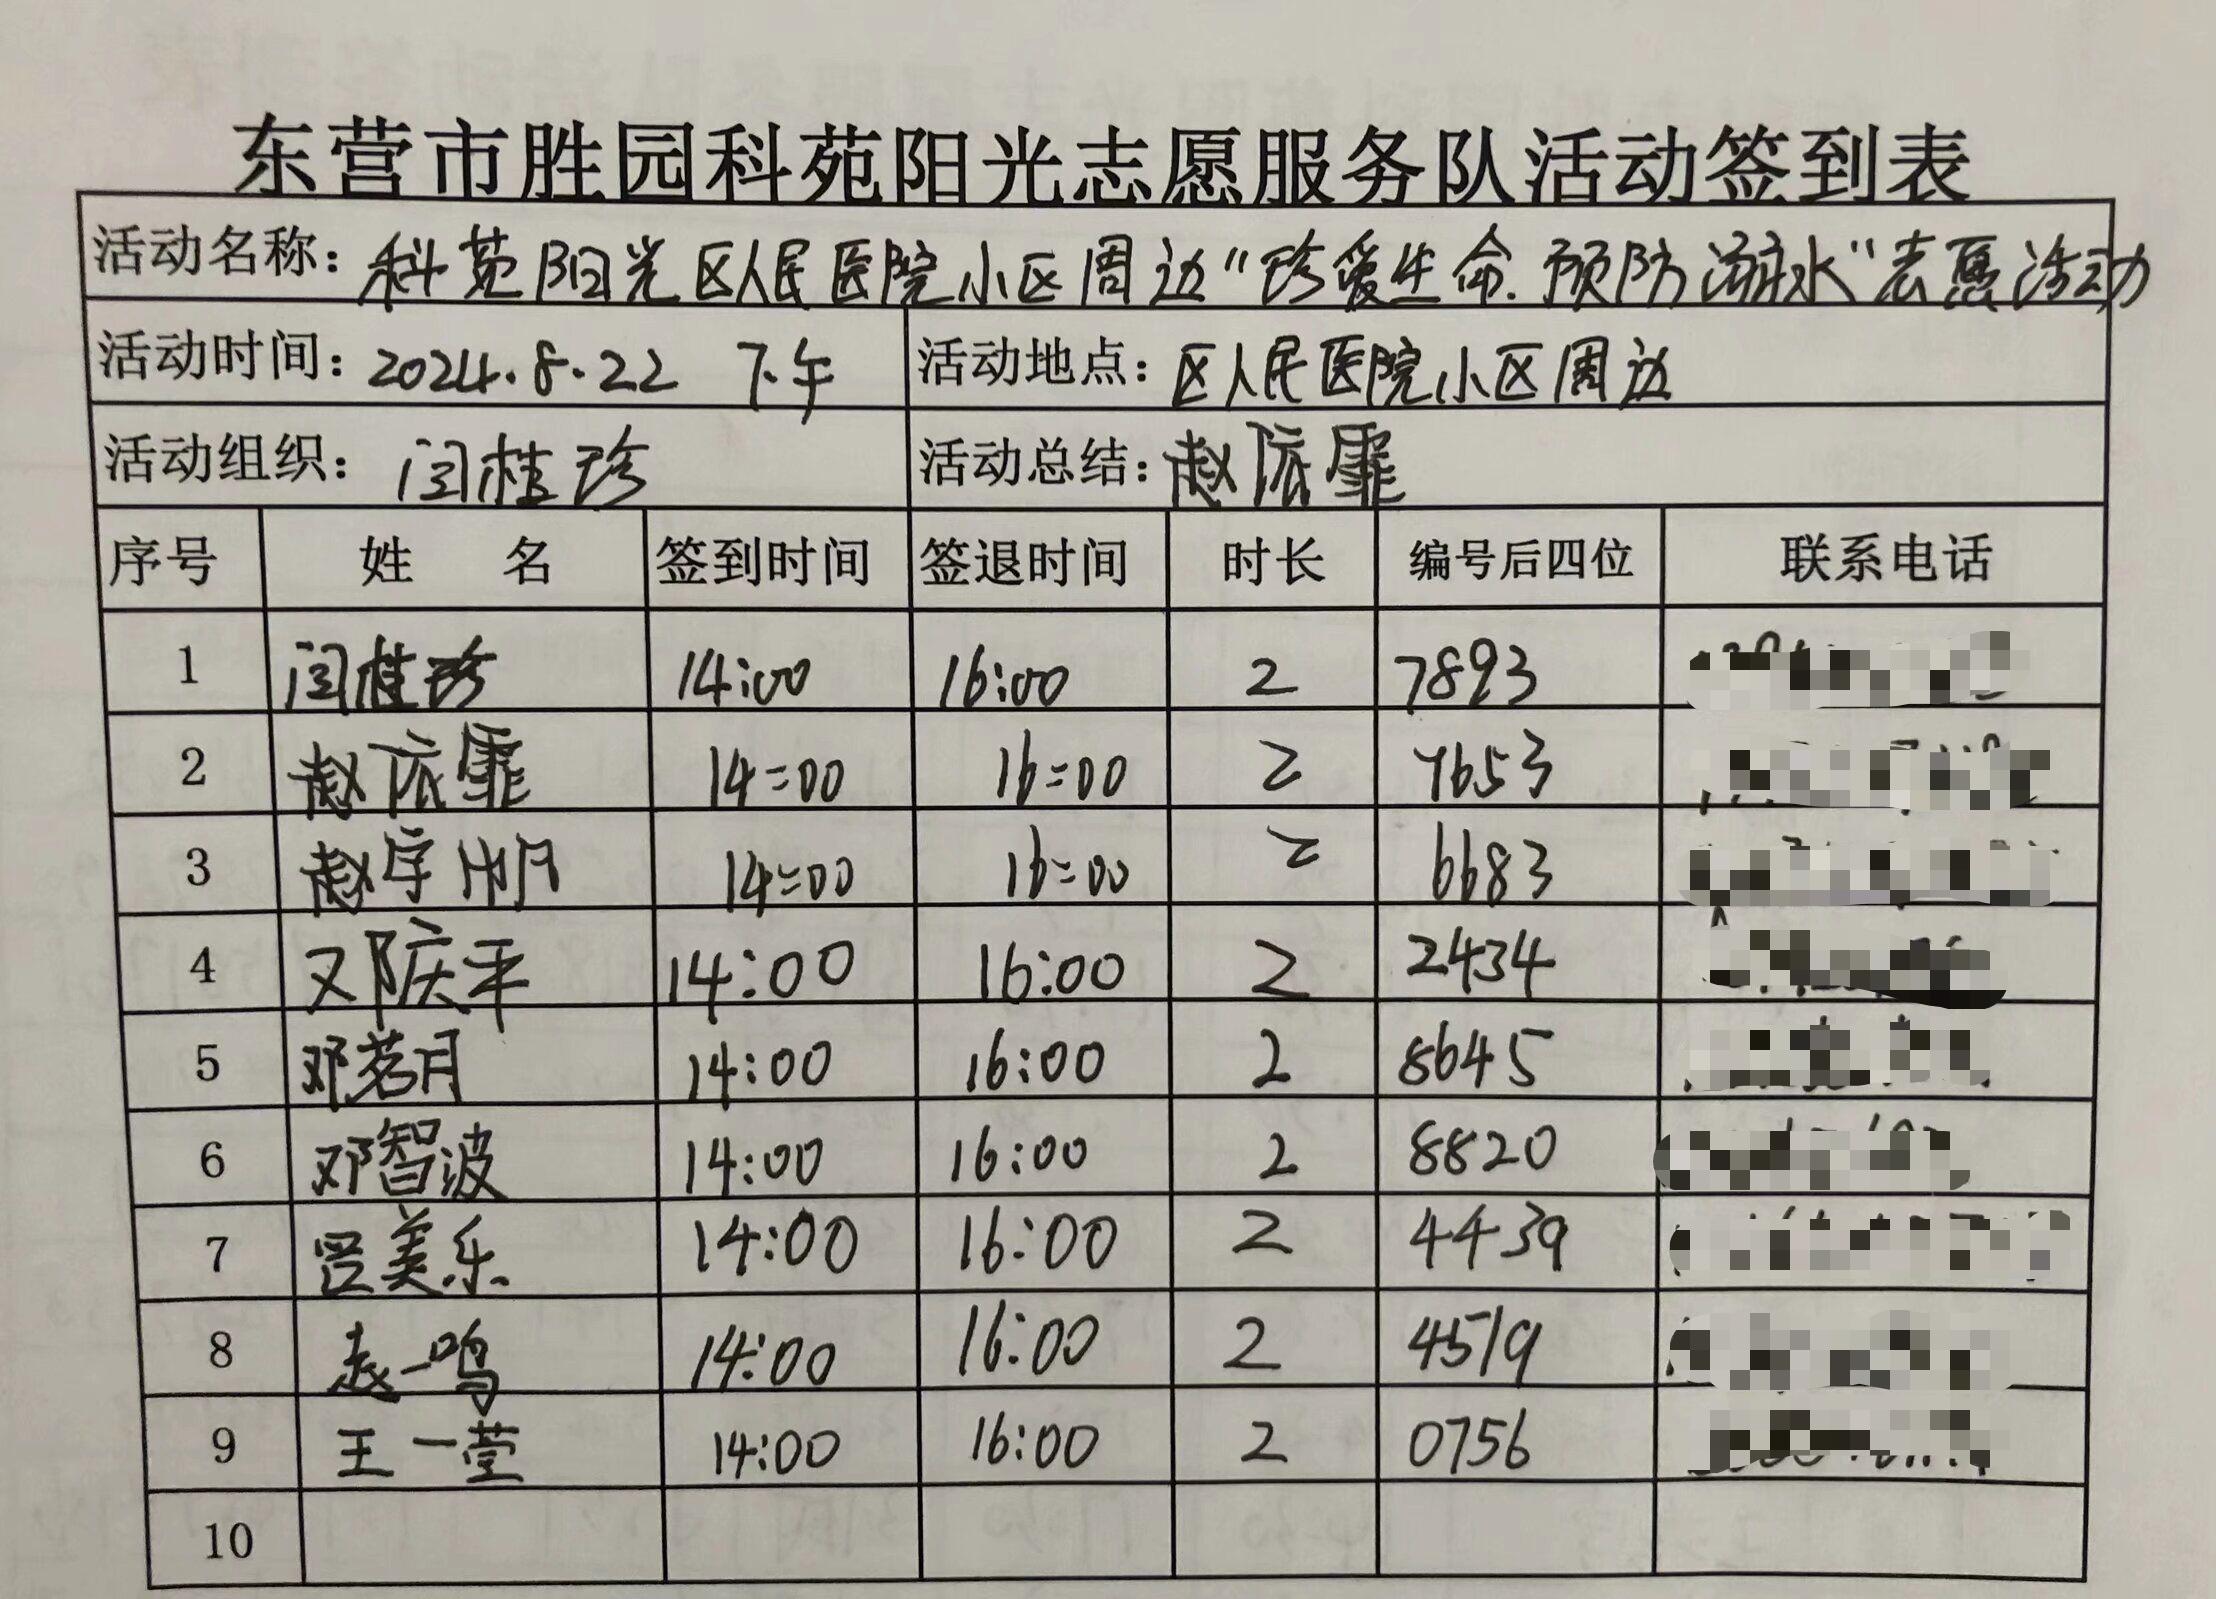 东营市胜园科苑阳光志愿服务队活动签到表
活动名称：科苑阳光区人民医院小区周边“珍爱生命.预防溺水”志愿活动
活动时间：2024.8.22 下午 活动地点：区人民医院小区周边
活动组织：闫桂珍 活动总结：赵依霏
序号 姓 名 签到时间 签退时间 时长 编号后四位 联系电话
1 闫桂珍 14:00 16:00 2 7893
2 赵依霏 14:00 16:00 2 7653
3 赵字 14:00 16:00 2 6683
4 邓庆平 14:00 16:00 2 2434
5 邓茗月 14:00 16:00 2 8645
6 邓智波 14:00 16:00 2 8820
7 吕美乐 14:00 16:00 2 4439
8 赵一鸣 14:00 16:00 2 4519
9 王一莹 14:00 16:00 2 0756
10